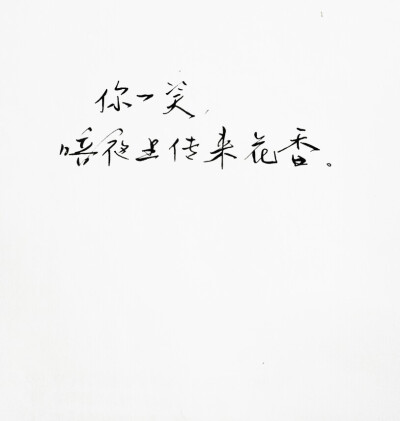 你一笑，
暗夜里传来花香。